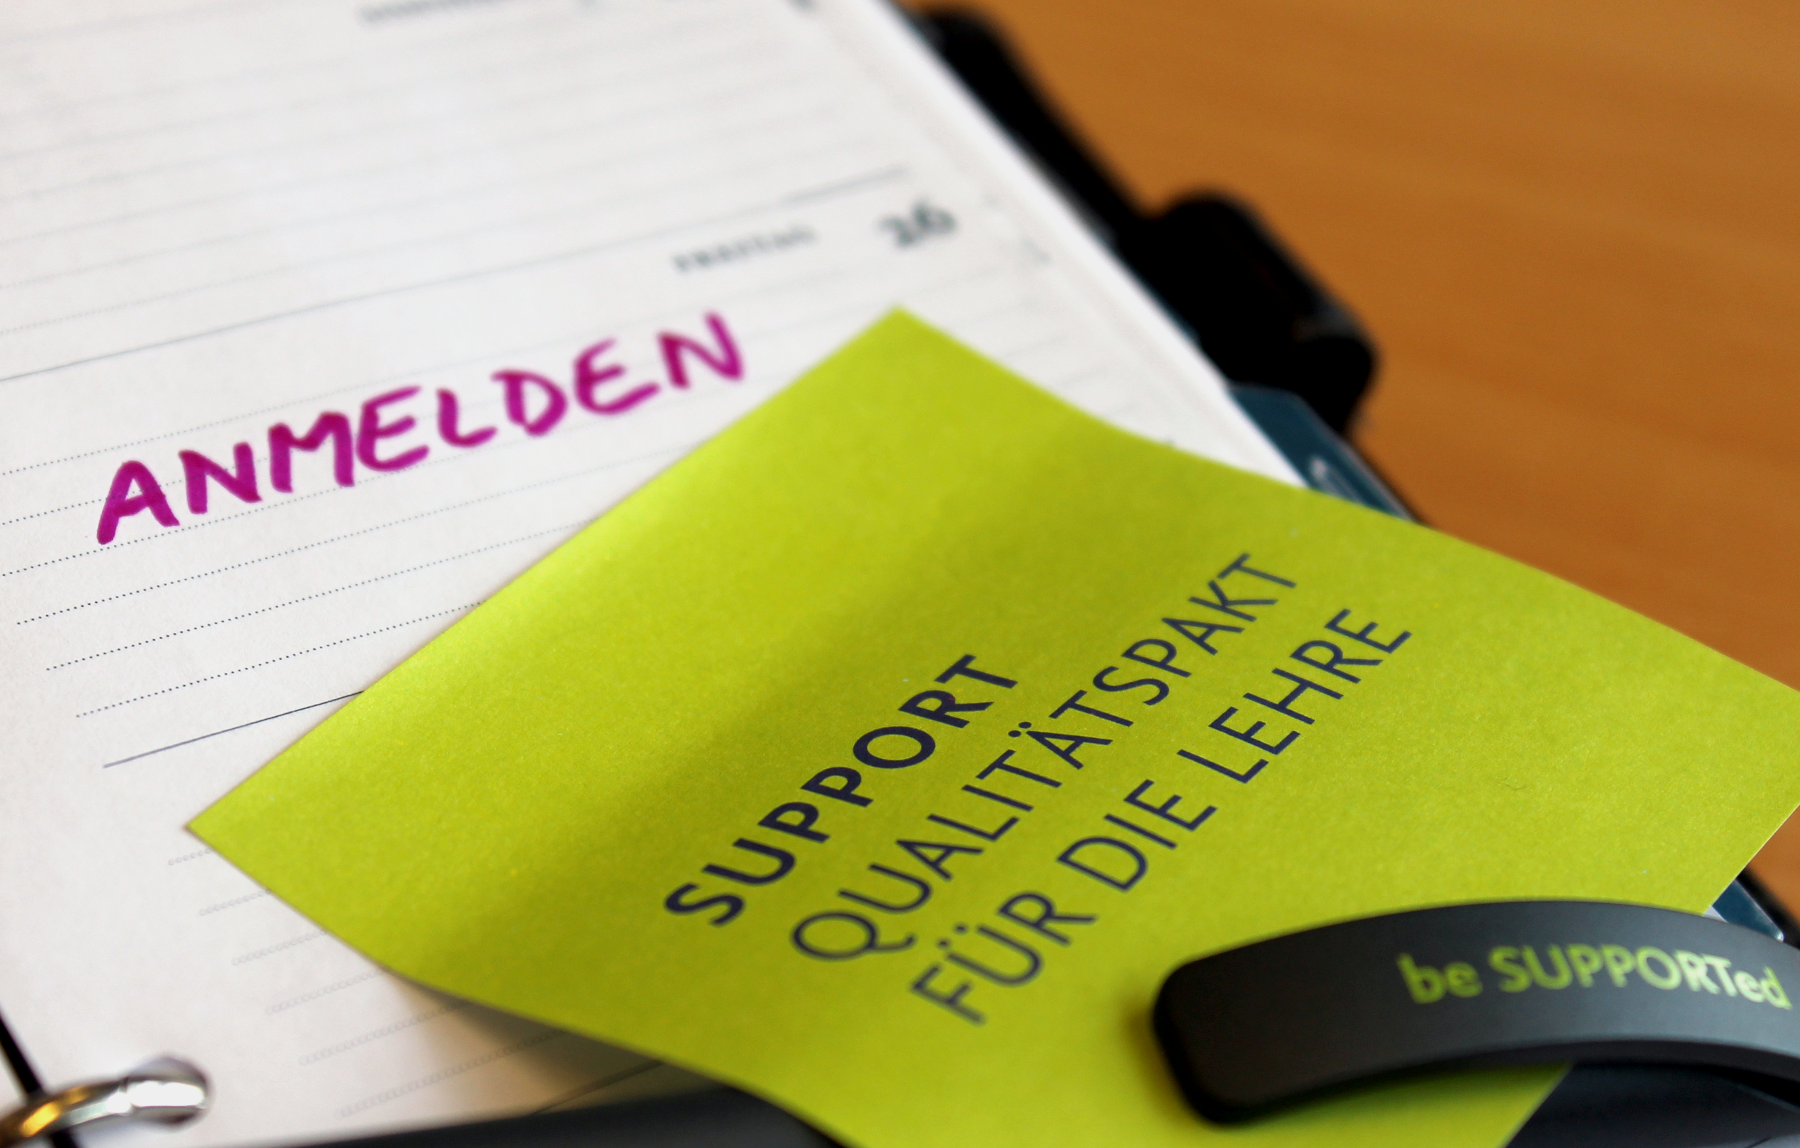 FREITAG 26
ANMELDEN
SUPPORT
QUALITÄTSPAKT
FÜR DIE LEHRE
be SUPPORTed